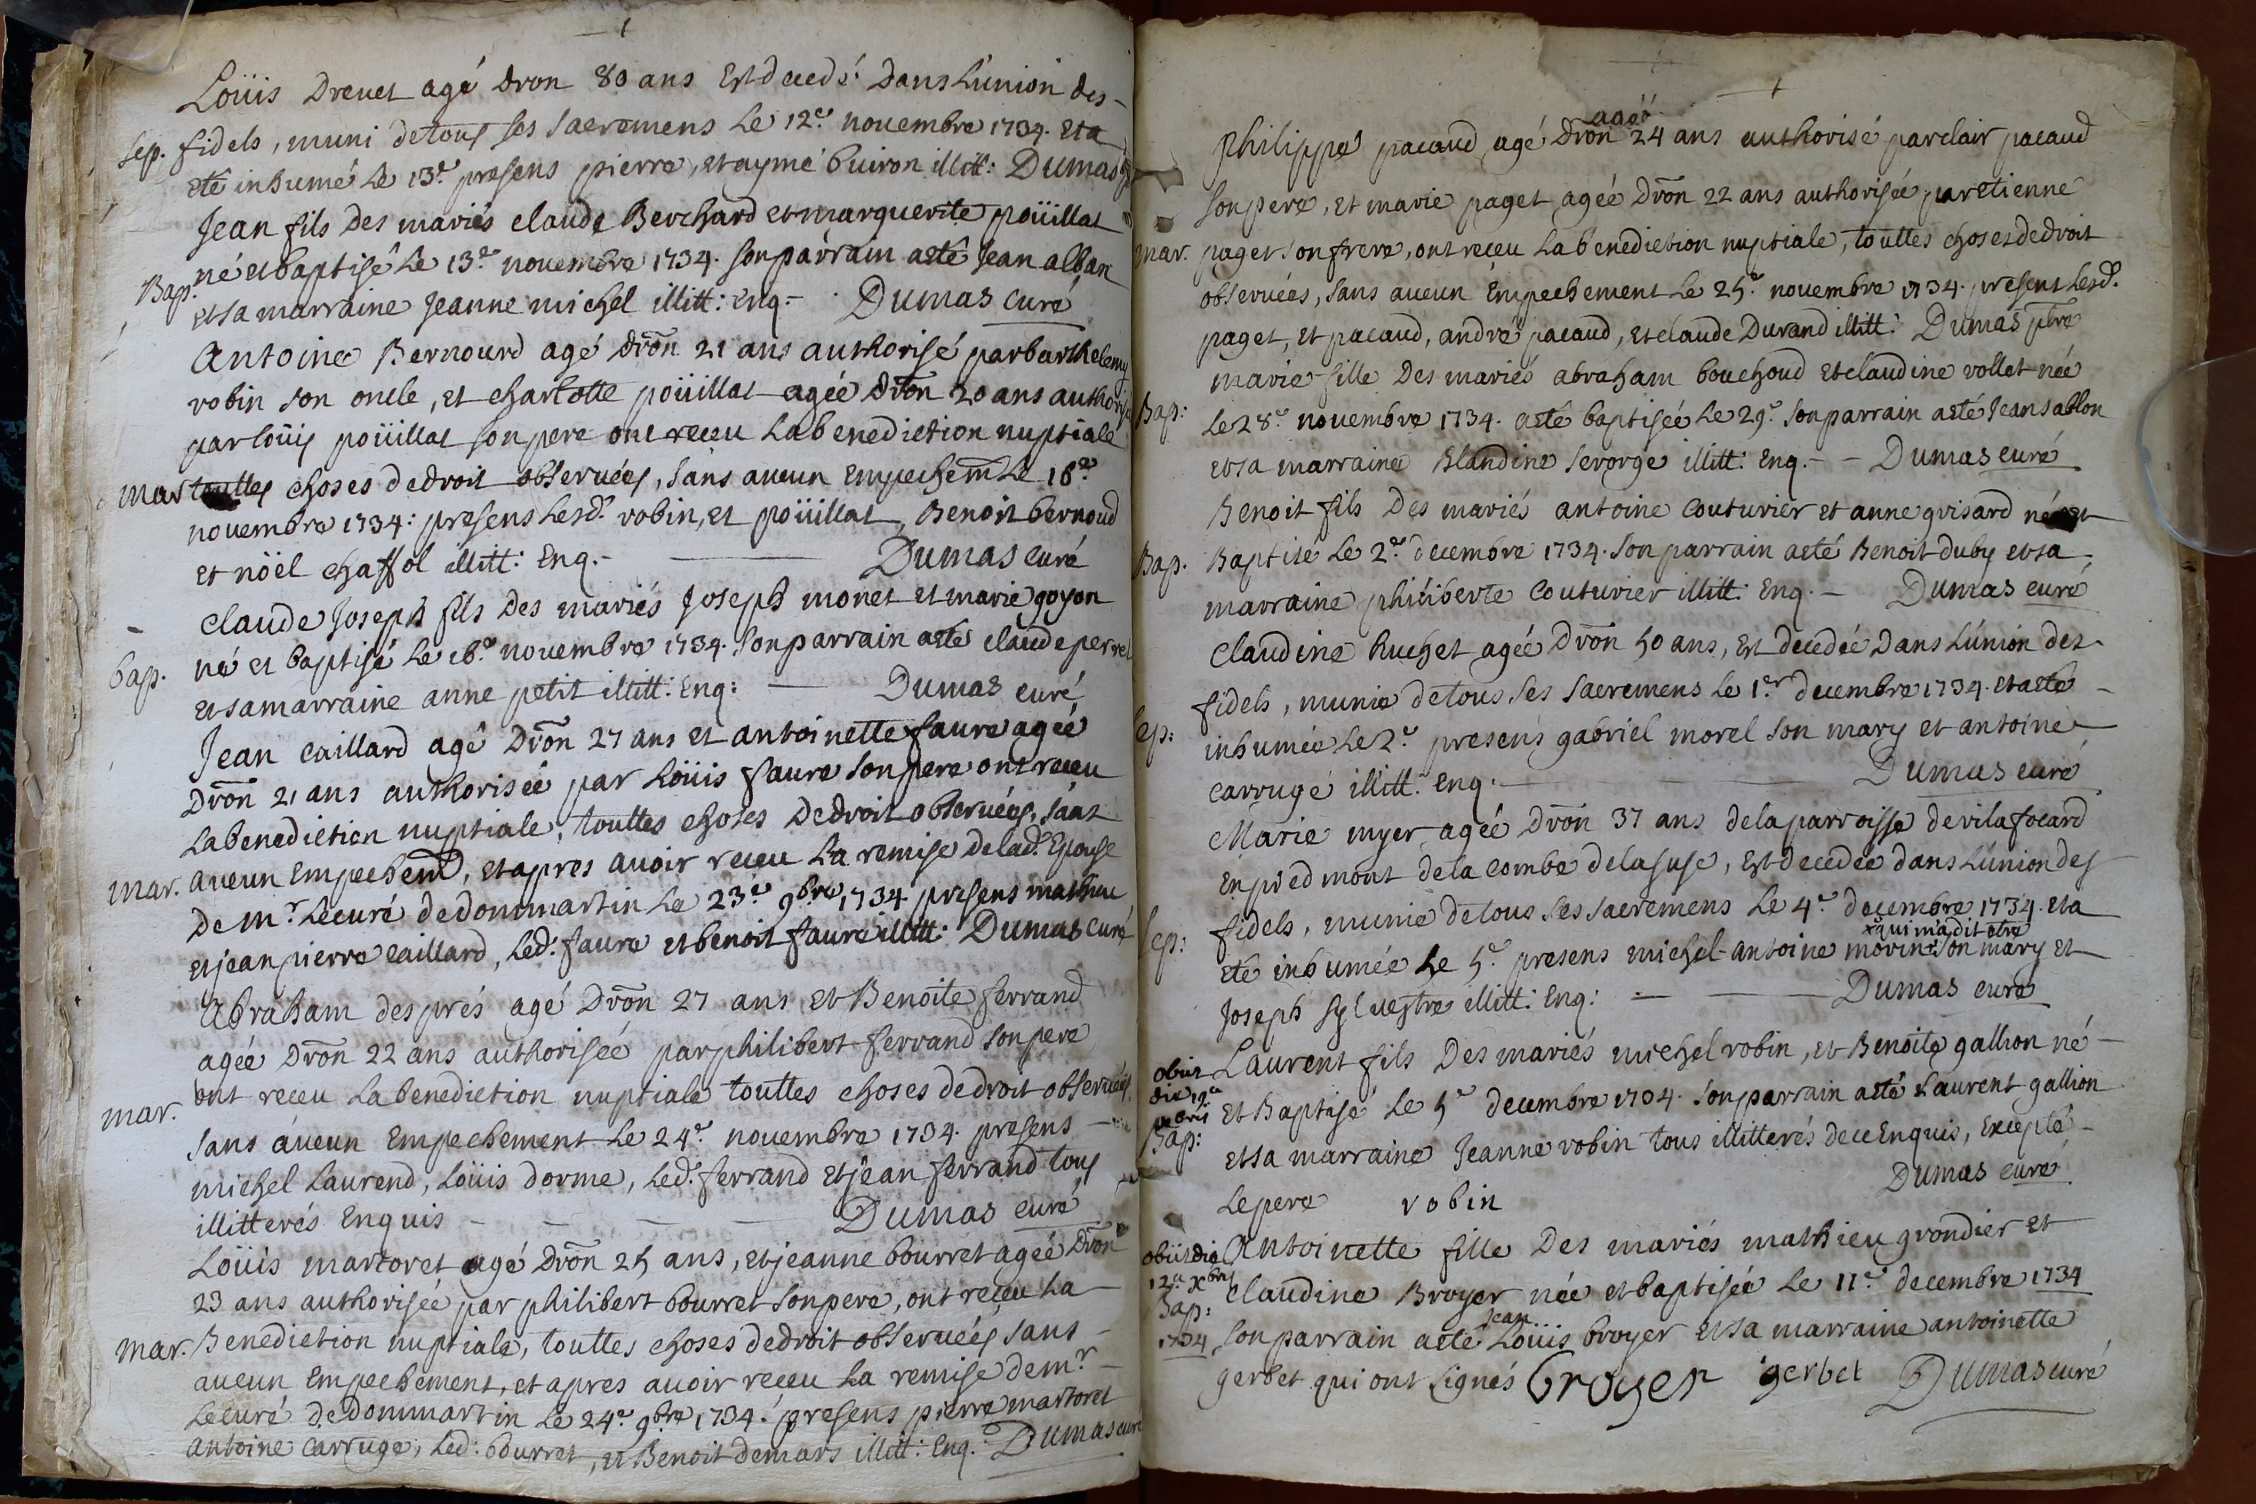 Loüis Drevet agé dron 80 ans Est decedé dans L'union des
sep. fidels, muni de tous ses sacremens Le 12e novembre 1734. Et a
eté inhumé Le 13e presens pierre, et aymé buiron illitt: Dumas
Jean fils des mariés claude Berchard et marguerite poüillat
Bap. né et baptisé Le 13e novembre 1734. son parrain a eté Jean alban
et sa marraine Jeanne michel illitt: Enq.- Dumas curé
Antoine Bernourd agé dron 21 ans authorisé par barthelemy
robin son oncle, et charlotte poüillat agée dron 20 ans authorisé
par loüis poüillat son pere ont receu La benediction nuptiale
mar touttes choses de droit observées, sans aucun Empechem Le 18e
novembre 1734: presens Lesd. robin, et poüillat, Benoit bernoud
et nöel chaffol illitt: Enq.- Dumas curé
claude Joseph fils des mariés Joseph monet et marie goyon
bap. né et baptisé Le 18e novembre 1734. son parrain a eté claude perret
et sa marraine anne petit illitt: Enq: Dumas curé
Jean caillard agé Dron 27 ans et antoinette faure agée
Dron 21 ans authorisée par Loüis faure son pere ont receu
La benediction nuptiale, touttes choses de droit observées, sans
mar. aucun Empechem, et apres avoir receu La remise de lad. Epouse
de mr. Le curé de dommartin Le 23e 9bre 1734. presens mathieu
et jean pierre caillard, Led: faure et benoit faure illitt: Dumas curé
Abraham després agé Dron 27 ans et Benoite ferrand
agée Dron 22 ans authorisée par philibert ferrand son pere
mar. ont receu La benediction nuptiale touttes choses de droit observées,
sans aucun Empechement Le 24e novembre 1734. presens
michel Laurend, Loüis dorme, Led. ferrand et jean ferrand tous
illitterés Enquis - - - - Dumas curé
Loüis martoret agé Dron 25 ans, et jeanne bourret agée Dron
23 ans authorisée par philibert bourret son pere, ont receu La
mar. Benediction nuptiale, touttes choses de droit observées sans
aucun Empechement, et apres avoir receu La remise de mr.
Le curé de dommartin Le 24e 9bre 1734. presens pierre martoret
antoine carruge, Led: bourret, et Benoit demars illitt: Enq: Dumas curé
agéé
Philippe pacaud agé Dron 24 ans authorisé par clair pacaud
son pere, et marie paget agée Dron 22 ans authorisée par etienne
mar. paget son frere, ont receu La benediction nuptiale, touttes choses de droit
observées, sans aucun Empechement Le 25e novembre 1734. present Lesd.
paget, et pacaud, andré pacaud, et claude Durand illitt: Dumas ptre
marie fille des mariés abraham bouchoud et claudine vollet née
Bap: Le 28e novembre 1734. a eté baptisée Le 29e son parrain a eté Jean sablon
et sa marraine Blandine serorge illitt: Enq.- - Dumas curé
Benoit fils des mariés antoine couturier et anne grisard né et
Bap. Baptisé Le 2e decembre 1734. son parrain a eté Benoit duby et sa
marraine philiberte couturier illitt: Enq.- Dumas curé
claudine huchet agée Dron 50 ans, Est decedée dans L'union des
fidels, munie de tous ses sacremens Le 1er decembre 1734. et a eté
sep: inhumée Le 2e presens gabriel morel son mary et antoine
carrugé illitt: Enq.- Dumas curé
Marie myer agée Dron 37 ans de la parroisse de vilafocard
En piedmont de la combe de la suse, Est decedée dans L'union des
sep: fidels, munie de tous ses sacremens Le 4e decembre 1734. Et a
x qui ma dit etre
eté inhumée Le 5e presens michel-antoine morin x son mary et
Joseph sylvestre illitt: Enq: - - Dumas curé
obiit Laurent fils des mariés michel robin, et Benoite gallion né
die 19a
xbris
Bap: et Baptisé Le 5e decembre 1734. son parrain a eté Laurent gallion
et sa marraine Jeanne robin tous illitterés de ce Enquis, Excepté
Le pere robin Dumas curé
obiit die Antoinette fille des mariés mathieu grondier et
12a xbris
Bap:
1734 claudine Broyer née et baptisée Le 11e decembre 1734
Jean
son parrain a eté Loüis broyer et sa marraine antoinette
gerbet qui ont signés Broyer gerbet Dumas curé